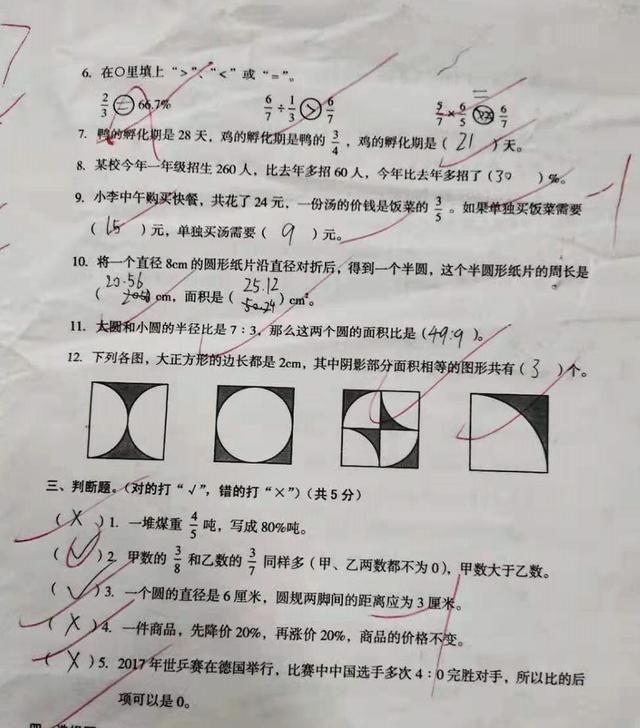 6. 在○里填上“>”、“<”或“=”。
2/3 = 66.7% 6/7 ÷ 1/3 > 6/7 5/7 × 6/5 = 6/7
7. 鸭的孵化期是28天，鸡的孵化期是鸭的 3/4，鸡的孵化期是（ 21 ）天。
8. 某校今年一年级招生260人，比去年多招60人，今年比去年多招了（ 30 ）%。
9. 小李中午购买快餐，共花了24元，一份汤的价钱是饭菜的 3/5。如果单独买饭菜需要
（ 15 ）元，单独买汤需要（ 9 ）元。
10. 将一个直径8cm的圆形纸片沿直径对折后，得到一个半圆，这个半圆形纸片的周长是
（ 20.56 ）cm，面积是（ 25.12 ）cm²。
11. 大圆和小圆的半径比是7∶3，那么这两个圆的面积比是（ 49:9 ）。
12. 下列各图，大正方形的边长都是2cm，其中阴影部分面积相等的图形共有（ 3 ）个。
三、判断题。（对的打“√”，错的打“×”）（共5分）
（ × ）1. 一堆煤重 4/5 吨，写成80%吨。
（ √ ）2. 甲数的 3/8 和乙数的 3/7 同样多（甲、乙两数都不为0），甲数大于乙数。
（ √ ）3. 一个圆的直径是6厘米，圆规两脚间的距离应为3厘米。
（ × ）4. 一件商品，先降价20%，再涨价20%，商品的价格不变。
（ × ）5. 2017年世乒赛在德国举行，比赛中中国选手多次4∶0完胜对手，所以比的后
项可以是0。